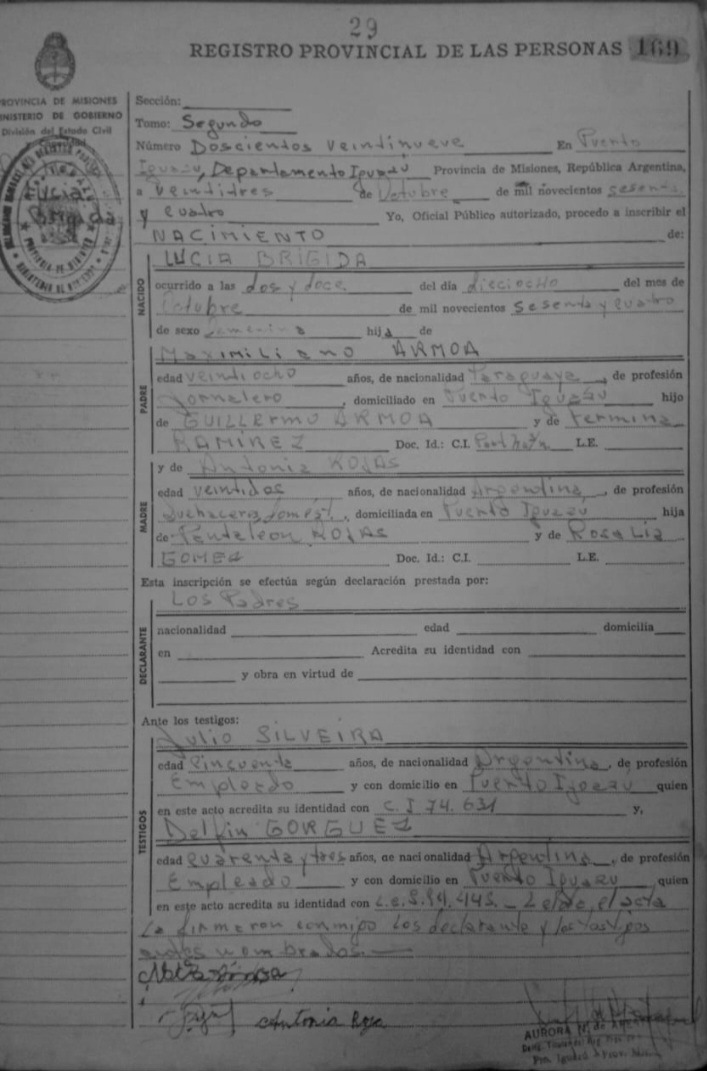 29
REGISTRO PROVINCIAL DE LAS PERSONAS 169
PROVINCIA DE MISIONES
MINISTERIO DE GOBIERNO
División del Estado Civil
Lucia
Brigida
Sección:
Tomo: Segundo
Número Doscientos veintinueve En Puerto
Iguazú, Departamento Iguazú Provincia de Misiones, República Argentina,
a veintitres de Octubre de mil novecientos sesenta
y cuatro Yo, Oficial Público autorizado, procedo a inscribir el
NACIMIENTO de:
NACIDO
LUCIA BRIGIDA
ocurrido a las dos y doce del día dieciocho del mes de
Octubre de mil novecientos sesenta y cuatro
de sexo femenino hija de
PADRE
Maximiliano ARMOA
edad veintiocho años, de nacionalidad Paraguaya, de profesión
Jornalero, domiciliado en Puerto Iguazu hijo
de GUILLERMO ARMOA y de Fermina
RAMIREZ Doc. Id.: C.I. L.E.
MADRE
y de Antonia ROJAS
edad veintidos años, de nacionalidad Argentina, de profesión
quehaceres domést., domiciliada en Puerto Iguazu hija
de Pantaleon ROJAS y de Rosalia
GOMEZ Doc. Id.: C.I. L.E.
Esta inscripción se efectúa según declaración prestada por:
DECLARANTE
Los Padres
nacionalidad edad domicilia
en Acredita su identidad con
y obra en virtud de
Ante los testigos:
TESTIGOS
Julio SILVEIRA
edad cincuenta años, de nacionalidad Argentina, de profesión
Empleado y con domicilio en Puerto Iguazu quien
en este acto acredita su identidad con C.I 74.631 y,
Delfin GORGUEZ
edad cuarenta y tres años, de nacionalidad Argentina, de profesión
Empleado y con domicilio en Puerto Iguazu quien
en este acto acredita su identidad con el acta
La firmaron conmigo los declarante y los testigos
antes nombrados.
Antonia Roja
AURORA